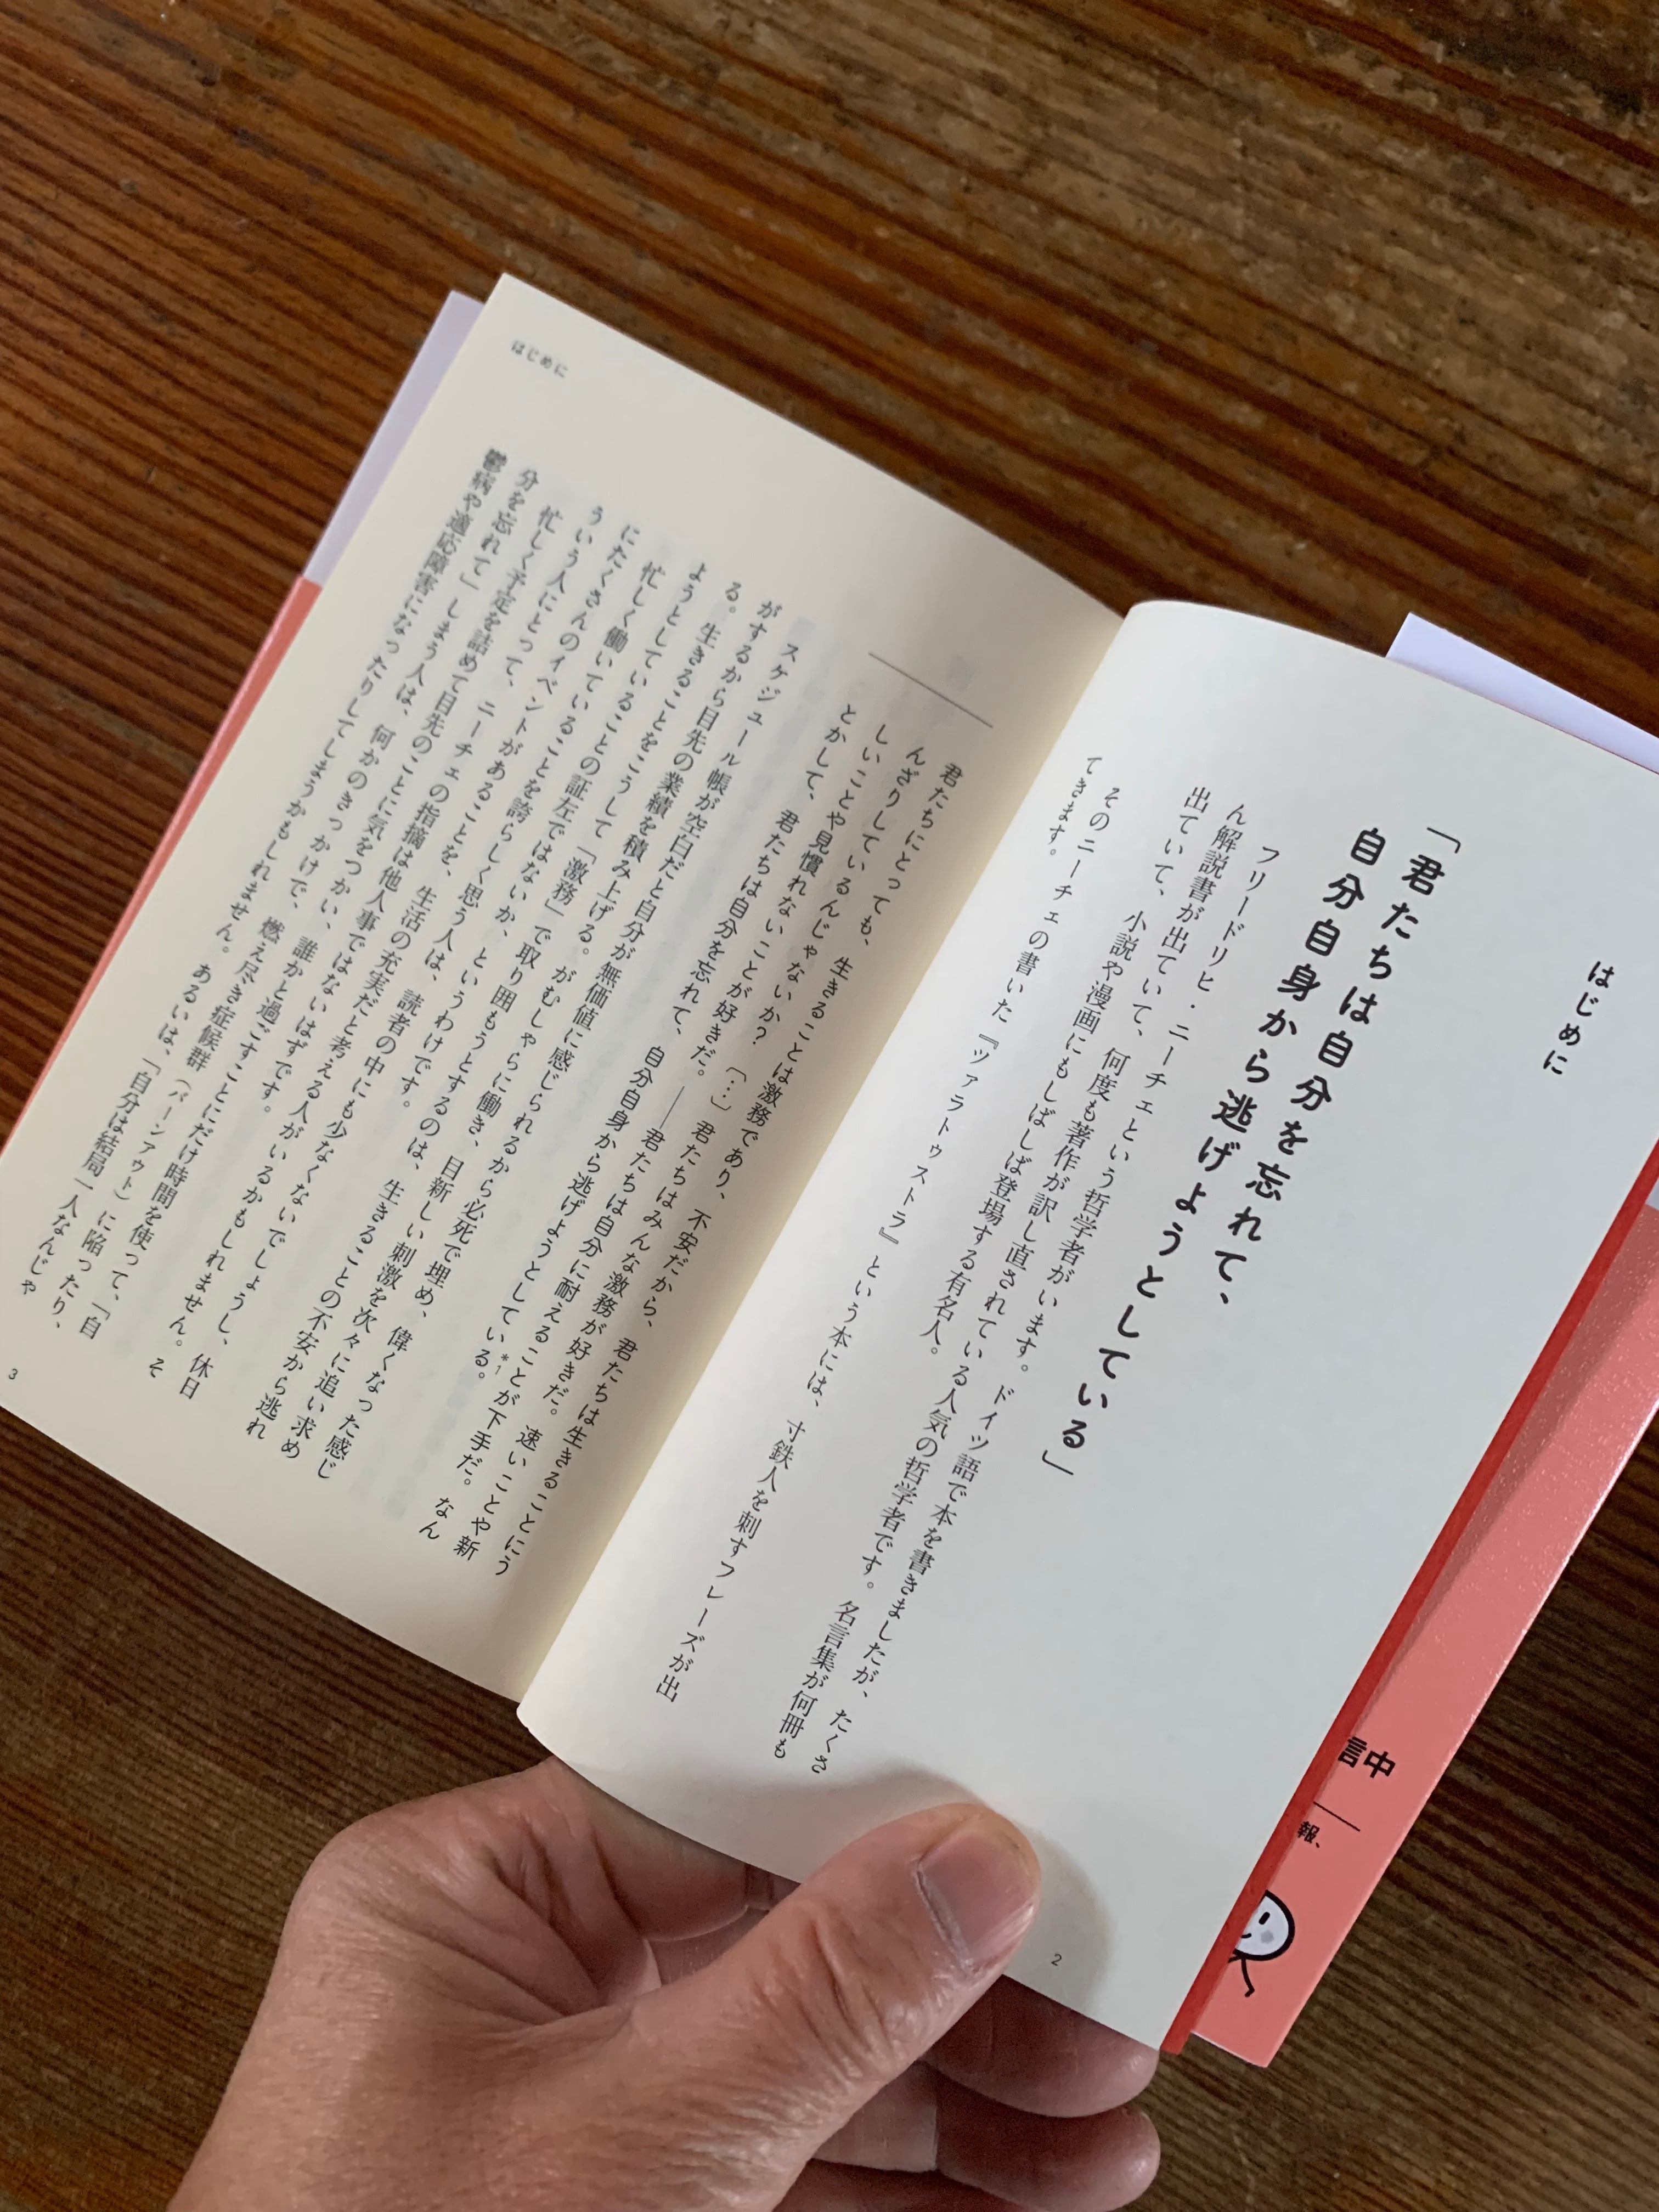 はじめに
「君たちは自分を忘れて、
自分自身から逃げようとしている」
フリードリヒ・ニーチェという哲学者がいます。ドイツ語で本を書きましたが、たくさ
ん解説書が出ていて、何度も著作が訳し直されている人気の哲学者です。名言集が何冊も
出ていて、小説や漫画にもしばしば登場する有名人。
そのニーチェの書いた『ツァラトゥストラ』という本には、寸鉄人を刺すフレーズが出
てきます。
2
君たちにとっても、生きることは激務であり、不安だから、君たちは生きることにう
んざりしているんじゃないか？〔…〕君たちはみんな激務が好きだ。速いことや新
しいことや見慣れないことが好きだ。――君たちは自分に耐えることが下手だ。なん
とかして、君たちは自分を忘れて、自分自身から逃げようとしている。*1
スケジュール帳が空白だと自分が無価値に感じられるから必死で埋め、偉くなった感じ
がするから目先の業績を積み上げる。がむしゃらに働き、目新しい刺激を次々に追い求め
る。生きることをこうして「激務」で取り囲もうとするのは、生きることの不安から逃れ
ようとしていることの証左ではないか、というわけです。
忙しく働いていることを誇らしく思う人は、読者の中にも少なくないでしょうし、休日
にたくさんのイベントがあることを、生活の充実だと考える人がいるかもしれません。そ
ういう人にとって、ニーチェの指摘は他人事ではないはずです。
忙しく予定を詰めて目先のことに気をつかい、誰かと過ごすことにだけ時間を使って、「自
分を忘れて」しまう人は、何かのきっかけで、燃え尽き症候群（バーンアウト）に陥ったり、
鬱病や適応障害になったりしてしまうかもしれません。あるいは、「自分は結局一人なんじゃ
はじめに
3
言中
報、